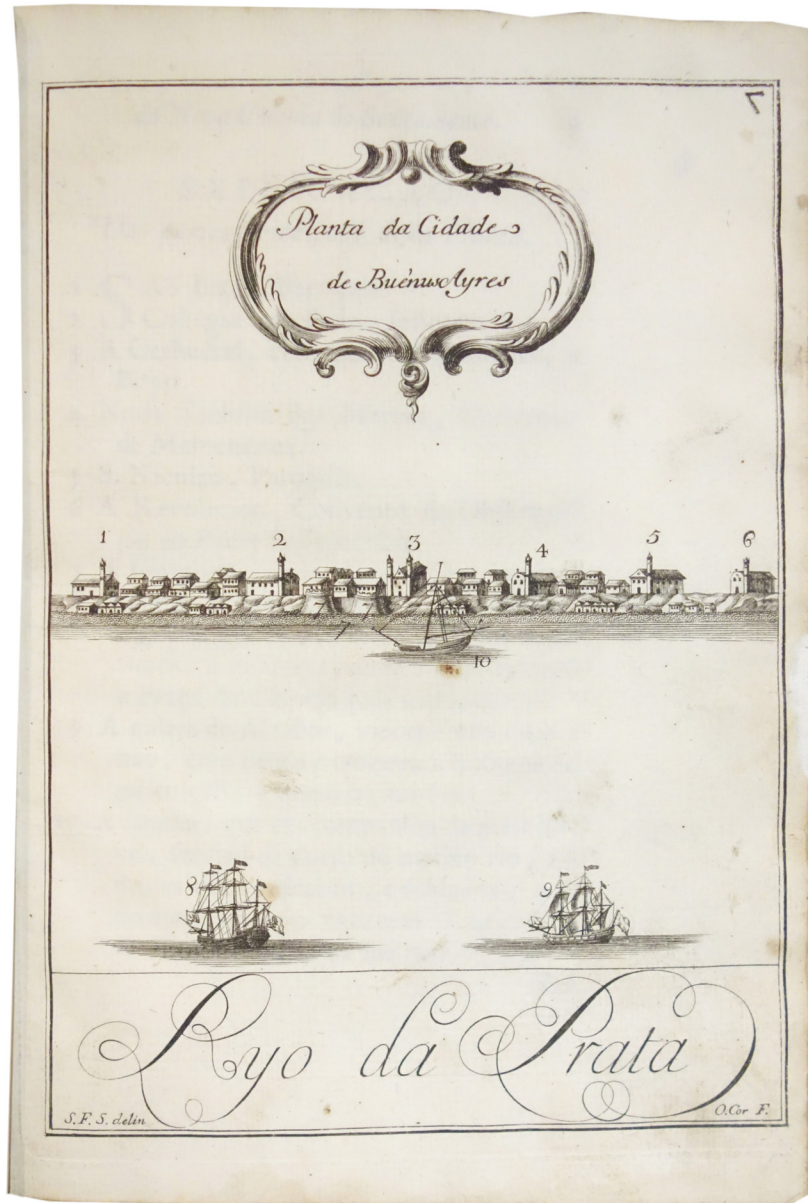 7
Planta da Cidade
de BuénusAyres
1 2 3 4 5 6
7
10
8 9
Ryo da Prata
S. F. S. delin O.Cor F.